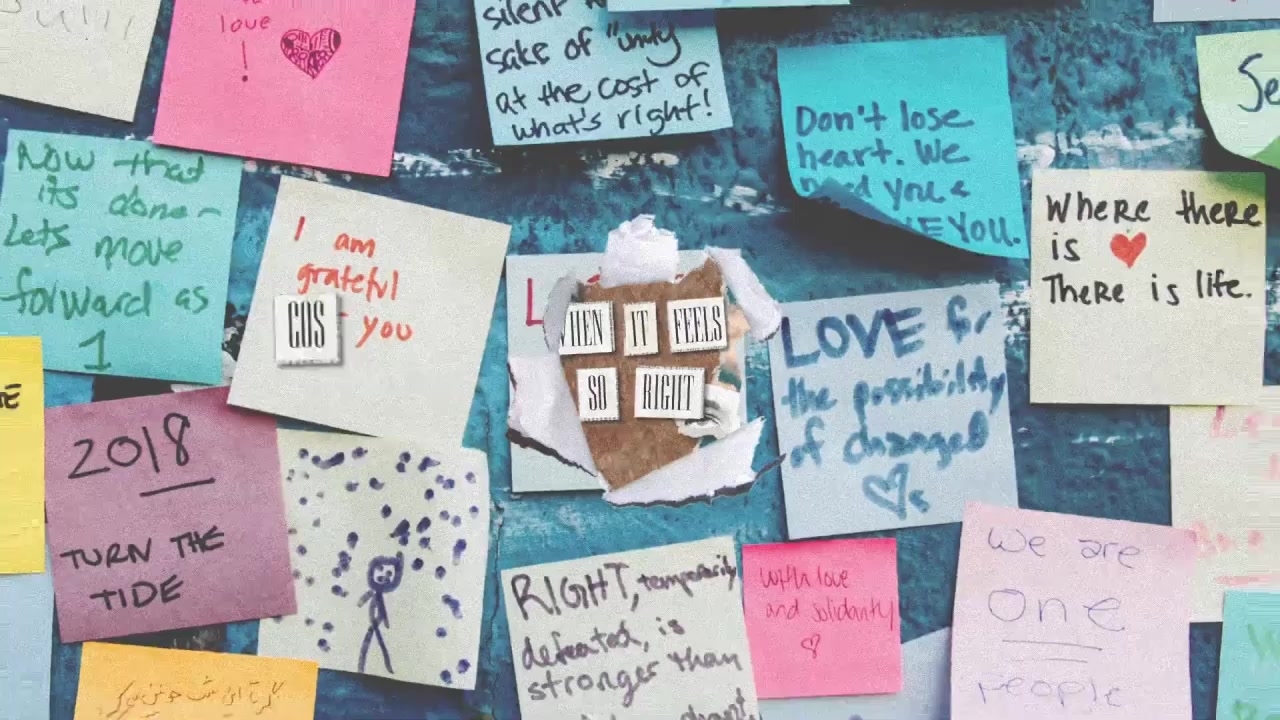 love
!
silent
sake of "unity
at the cost of
what's right!
Don't lose
heart. We
need you &
YOU.
Se
Now that
its done—
Lets move
forward as
1
I am
grateful
COS
you
L
WHEN IT FEELS
SO RIGHT
Where there
is ♥
There is life.
LOVE &
the possibility
of changed
♡s
2018
TURN THE
TIDE
RIGHT, temporarily
defeated, is
stronger than
With love
and solidarity
♡
We are
One
People